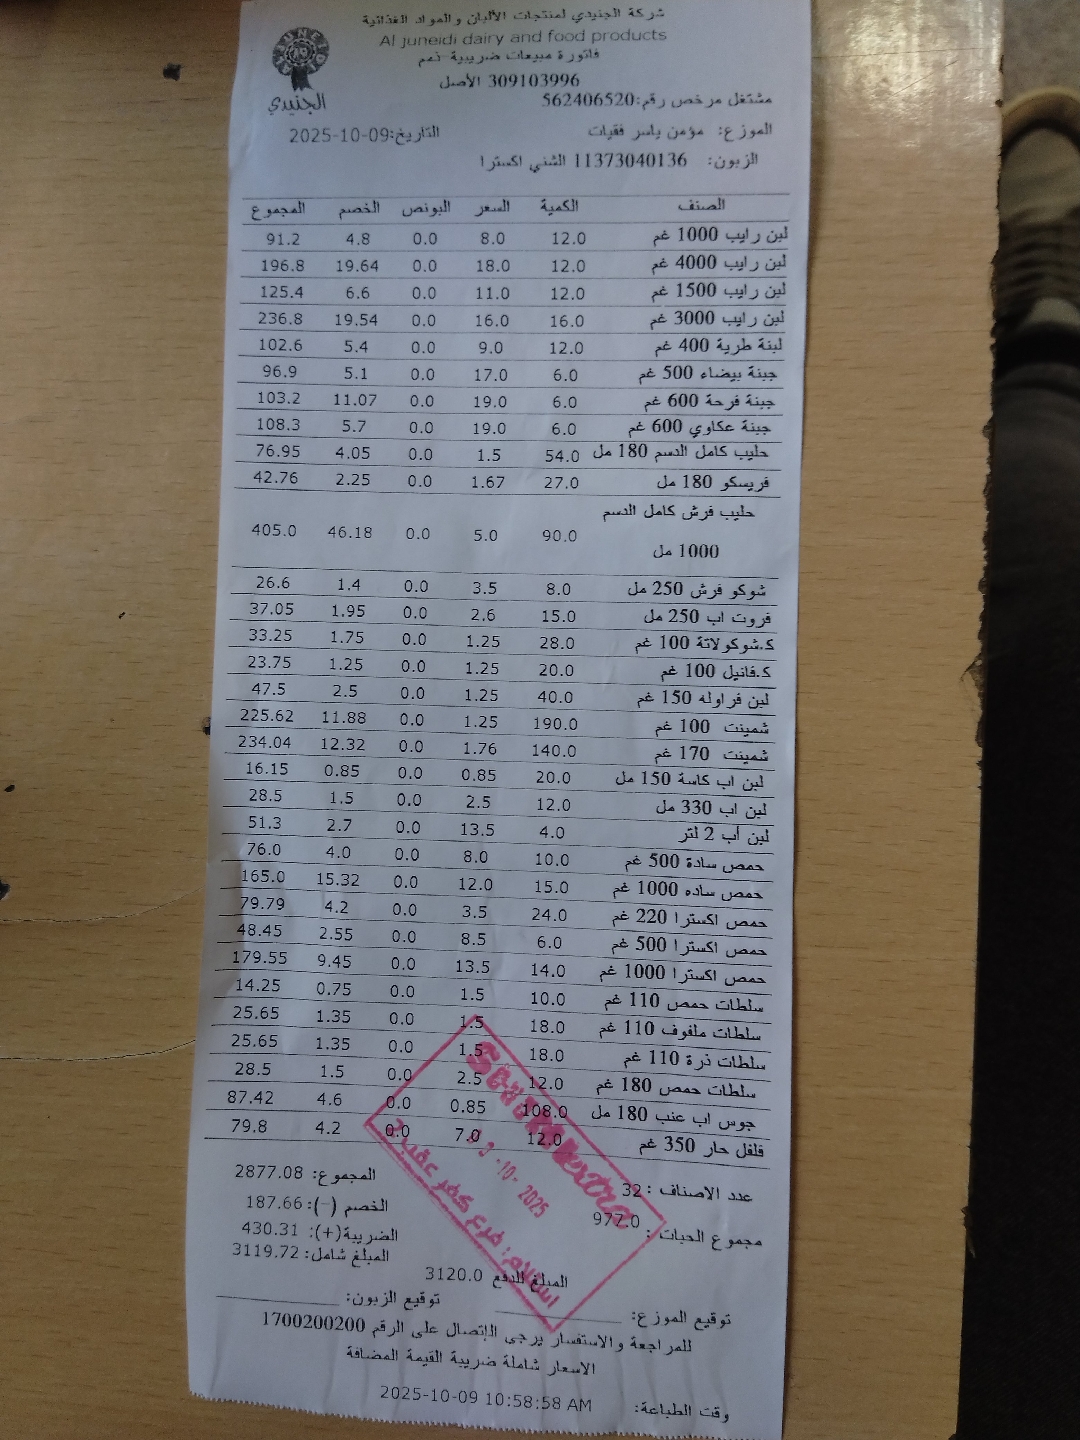 شركة الجنيدي لمنتجات الألبان والمواد الغذائية
Al juneidi dairy and food products
فاتورة مبيعات ضريبية ذمم
309103996 الأصل
مشتغل مرخص رقم:562406520
الجنيدي
الموزع: مؤمن ياسر فقيات
التاريخ:2025-10-09
الزبون: 11373040136 الشني اكسترا
الصنف الكمية السعر البونص الخصم المجموع
لبن رايب 1000 غم 12.0 8.0 0.0 4.8 91.2
لبن رايب 4000 غم 12.0 18.0 0.0 19.64 196.8
لبن رايب 1500 غم 12.0 11.0 0.0 6.6 125.4
لبن رايب 3000 غم 16.0 16.0 0.0 19.54 236.8
لبنة طرية 400 غم 12.0 9.0 0.0 5.4 102.6
جبنة بيضاء 500 غم 6.0 17.0 0.0 5.1 96.9
جبنة فرحة 600 غم 6.0 19.0 0.0 11.07 103.2
جبنة عكاوي 600 غم 6.0 19.0 0.0 5.7 108.3
حليب كامل الدسم 180 مل 54.0 1.5 0.0 4.05 76.95
فريسكو 180 مل 27.0 1.67 0.0 2.25 42.76
حليب فرش كامل الدسم
1000 مل 90.0 5.0 0.0 46.18 405.0
شوكو فرش 250 مل 8.0 3.5 0.0 1.4 26.6
فروت اب 250 مل 15.0 2.6 0.0 1.95 37.05
ك.شوكولاتة 100 غم 28.0 1.25 0.0 1.75 33.25
ك.فانيل 100 غم 20.0 1.25 0.0 1.25 23.75
لبن فراوله 150 غم 40.0 1.25 0.0 2.5 47.5
شمينت 100 غم 190.0 1.25 0.0 11.88 225.62
شمينت 170 غم 140.0 1.76 0.0 12.32 234.04
لبن اب كاسة 150 مل 20.0 0.85 0.0 0.85 16.15
لبن اب 330 مل 12.0 2.5 0.0 1.5 28.5
لبن أب 2 لتر 4.0 13.5 0.0 2.7 51.3
حمص سادة 500 غم 10.0 8.0 0.0 4.0 76.0
حمص ساده 1000 غم 15.0 12.0 0.0 15.32 165.0
حمص اكسترا 220 غم 24.0 3.5 0.0 4.2 79.79
حمص اكسترا 500 غم 6.0 8.5 0.0 2.55 48.45
حمص اكسترا 1000 غم 14.0 13.5 0.0 9.45 179.55
سلطات حمص 110 غم 10.0 1.5 0.0 0.75 14.25
سلطات ملفوف 110 غم 18.0 1.5 0.0 1.35 25.65
سلطات ذرة 110 غم 18.0 1.5 0.0 1.35 25.65
سلطات حمص 180 غم 12.0 2.5 0.0 1.5 28.5
جوس اب عنب 180 مل 108.0 0.85 0.0 4.6 87.42
فلفل حار 350 غم 12.0 7.0 0.0 4.2 79.8
عدد الاصناف : 32
المجموع: 2877.08
مجموع الحبات : 977.0
الخصم (-): 187.66
الضريبة(+): 430.31
المبلغ شامل: 3119.72
المبلغ للدفع 3120.0
extra
9 -10- 2025
استلام: فرع كفر عقب 2
توقيع الموزع:
توقيع الزبون:
للمراجعة والاستفسار يرجى الإتصال على الرقم 1700200200
الاسعار شاملة ضريبة القيمة المضافة
وقت الطباعة: 2025-10-09 10:58:58 AM